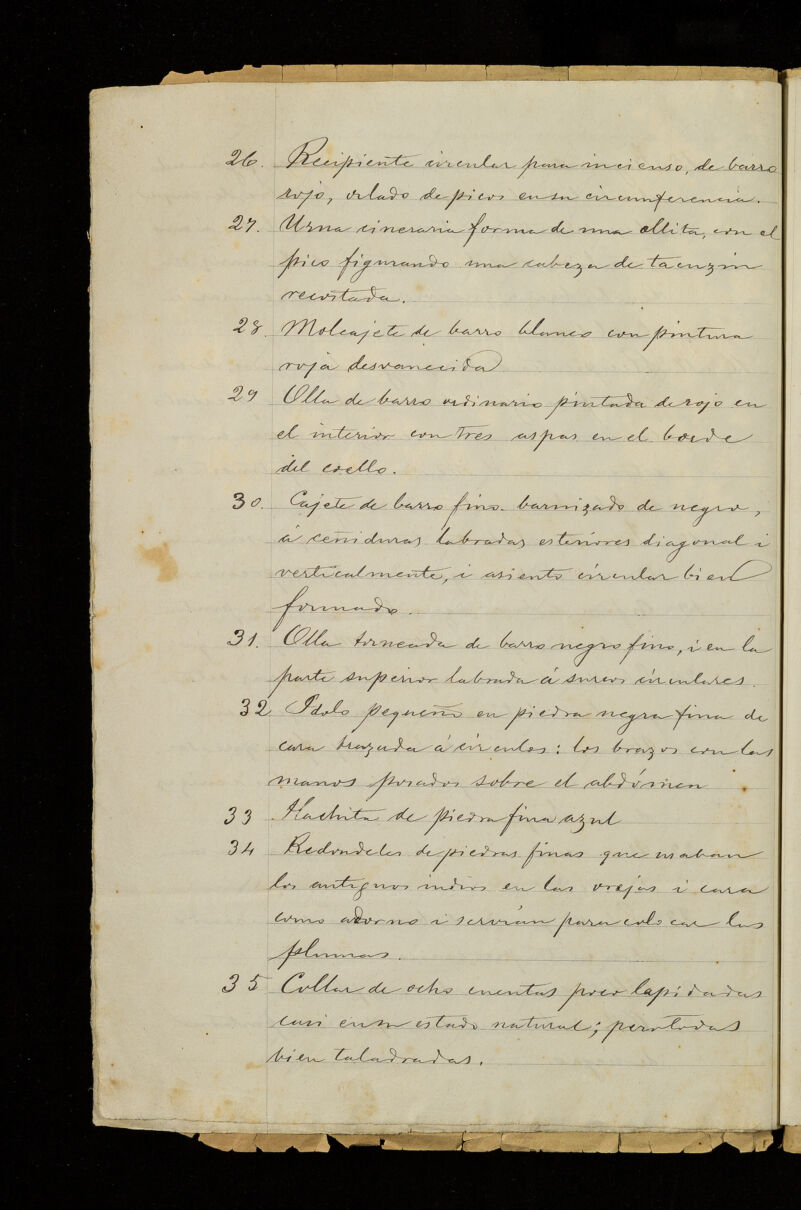 26. Recipiente circular para incienso, de barro
rojo, orlado de picos en su circunferencia.
27. Urna cineraria forma de una ollita, con el
pico figurando una cabeza de
recostada.
28. Molcajete de barro blanco con pintura
roja desvanecida
29 Olla de barro ordinario pintada de rojo en
el interior con tres aspas en el borde
del cuello.
30. Cajete de barro fino barnizado de negro,
á ceñiduras labradas esteriores diagonal i
verticalmente, i asiento circular bien
formado.
31. Olla torneada de barro negro fino, i en la
parte superior labrada á surcos circulares.
32 Idolo pequeño en piedra negra fina de
cara trazada á círculos: los brazos con las
manos posados sobre el abdómen
33 Hachita de piedra fina azul
34 Redondeles de piedras finas que usaban
los antiguos indios en las orejas i cara
como adorno i servían para colocar las
plumas.
35 Collar de ocho cuentas poco lapidadas
casi en su estado natural; pero todas
bien taladradas.